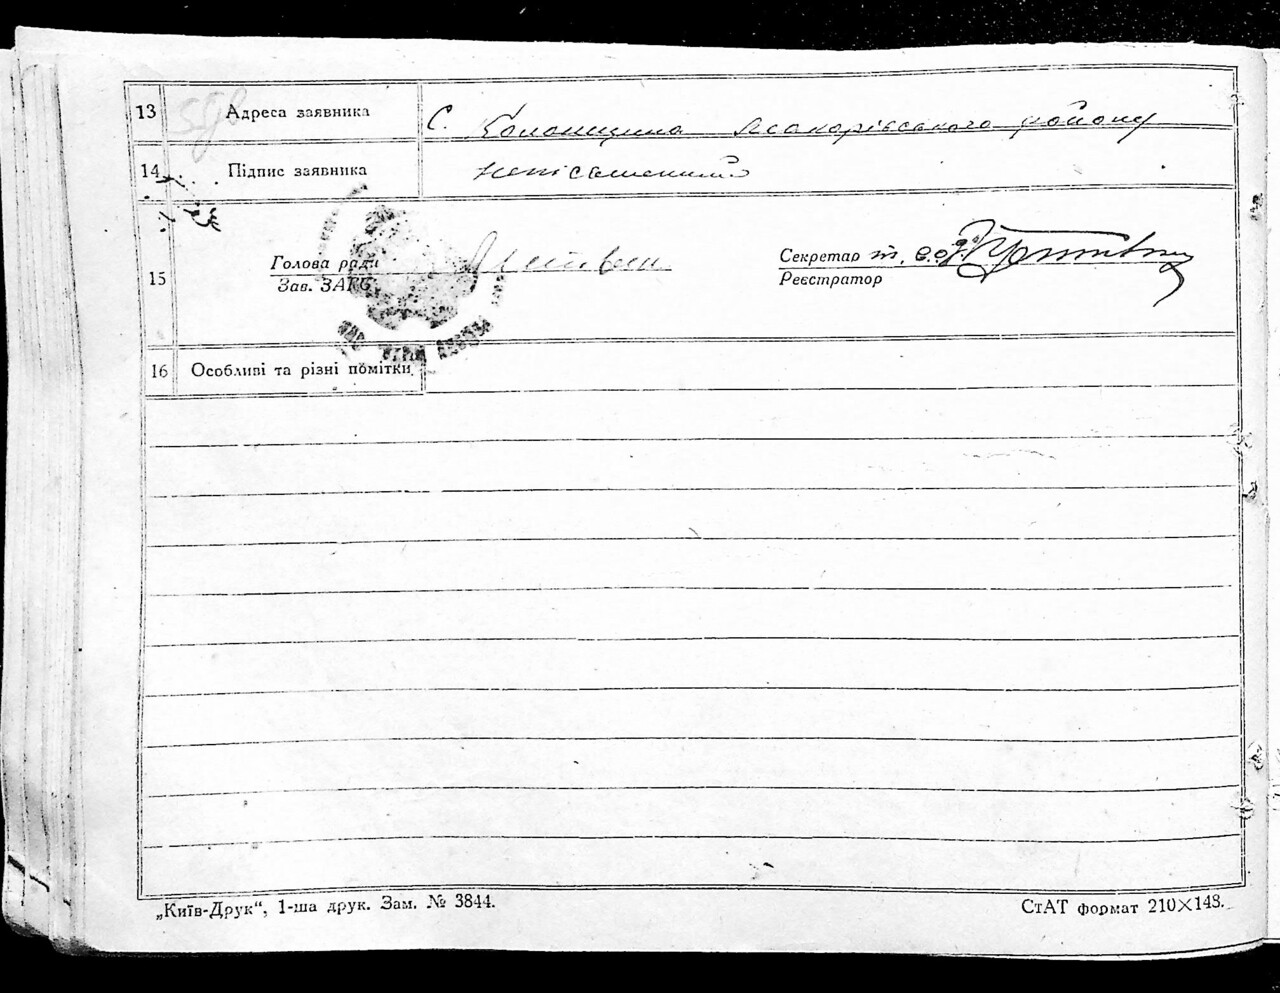 13 Адреса заявника С. Колонщина Макарівського району
14 Підпис заявника неписьменний
15 Голова ради Литвин Секретар
Зав. ЗАГС Реєстратор
16 Особливі та різні помітки.
„Київ-Друк“, 1-ша друк. Зам. № 3844. СтАТ формат 210×148.